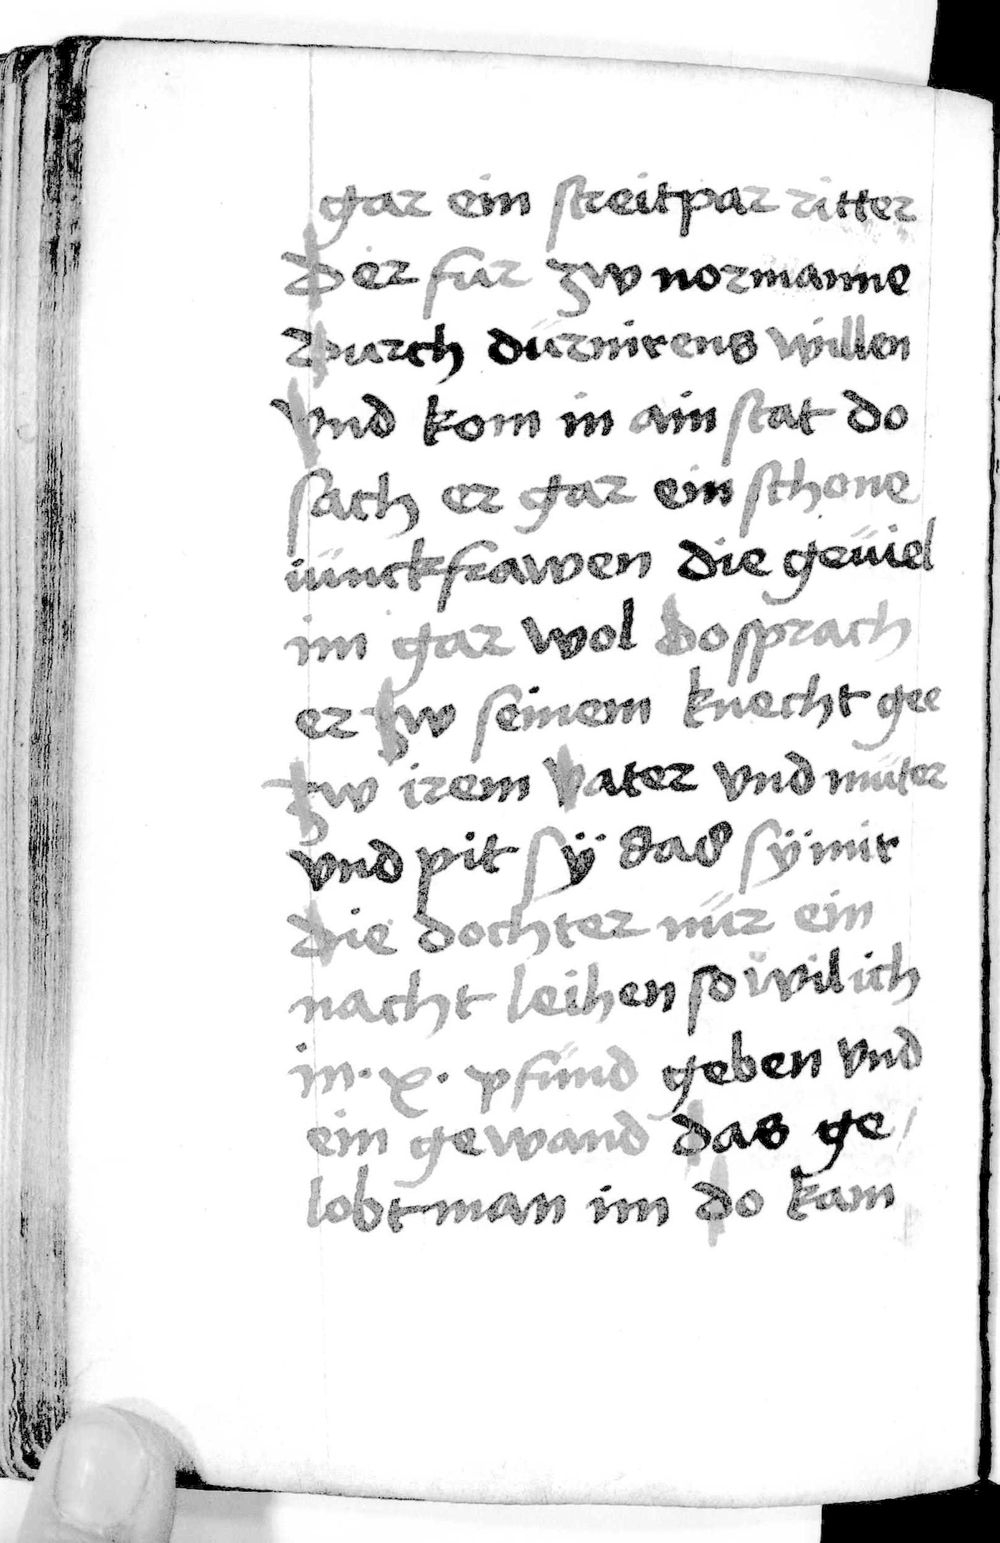 gar ein streitpar ritter
Der fur zw normanne
Durch durnirens willen
Vnd kom in ain stat do
sach er gar ein schone
iünckfrawen die geüiel
im gar wol Do sprach
er zw seinem knecht gee
zw irem Vater vnd müter
vnd pit sÿ das sÿ mir
die dochter nür ein
nacht leihen so wil ich
in · x · pfünd geben vnd
ein gewand das ge /
lobt man im do kam